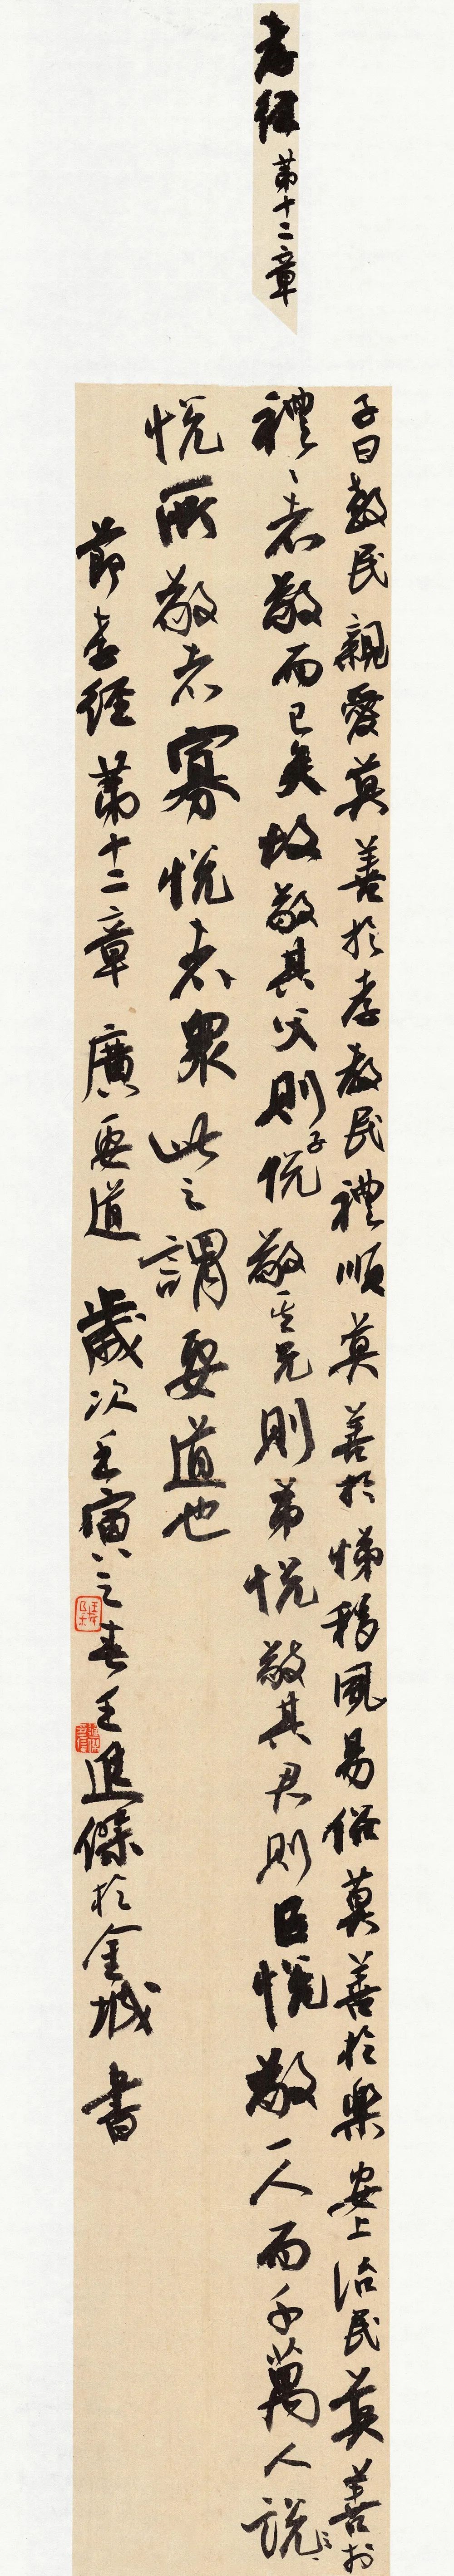 孝經 第十二章
子曰教民親愛莫善於孝教民禮順莫善於悌移風易俗莫善於樂安上治民莫善於
禮〻者敬而已矣故敬其父則子悅敬其兄則弟悅敬其君則臣悅敬一人而千萬人說
悅所敬者寡悅者眾此之謂要道也
節孝經第十二章 廣要道 歲次壬寅之春王傑於金城書